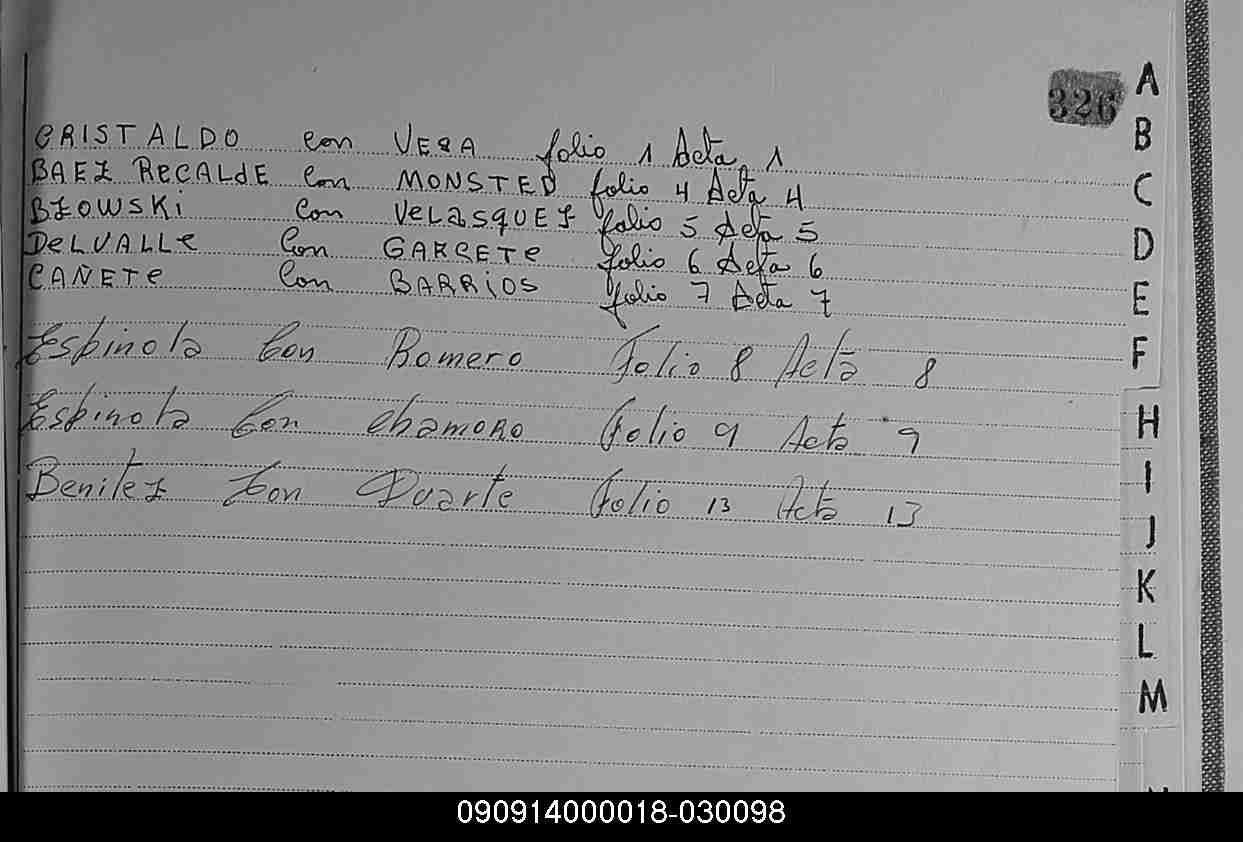 326
CRISTALDO con VERA folio 1 Acta 1
BAEZ RECALDE con MONSTED folio 4 Acta 4
BZOWSKi con VeLasqUEZ folio 5 Acta 5
DeLVALLe con GARCETe folio 6 Acta 6
CANETe con BARRiOS folio 7 Acta 7
Espinola Con Romero Folio 8 Acta 8
Espinola Con chamoRo Folio 9 Acta 9
Benitez Con Duarte Folio 13 Acta 13
A
B
C
D
E
F
H
I
J
K
L
M
090914000018-030098